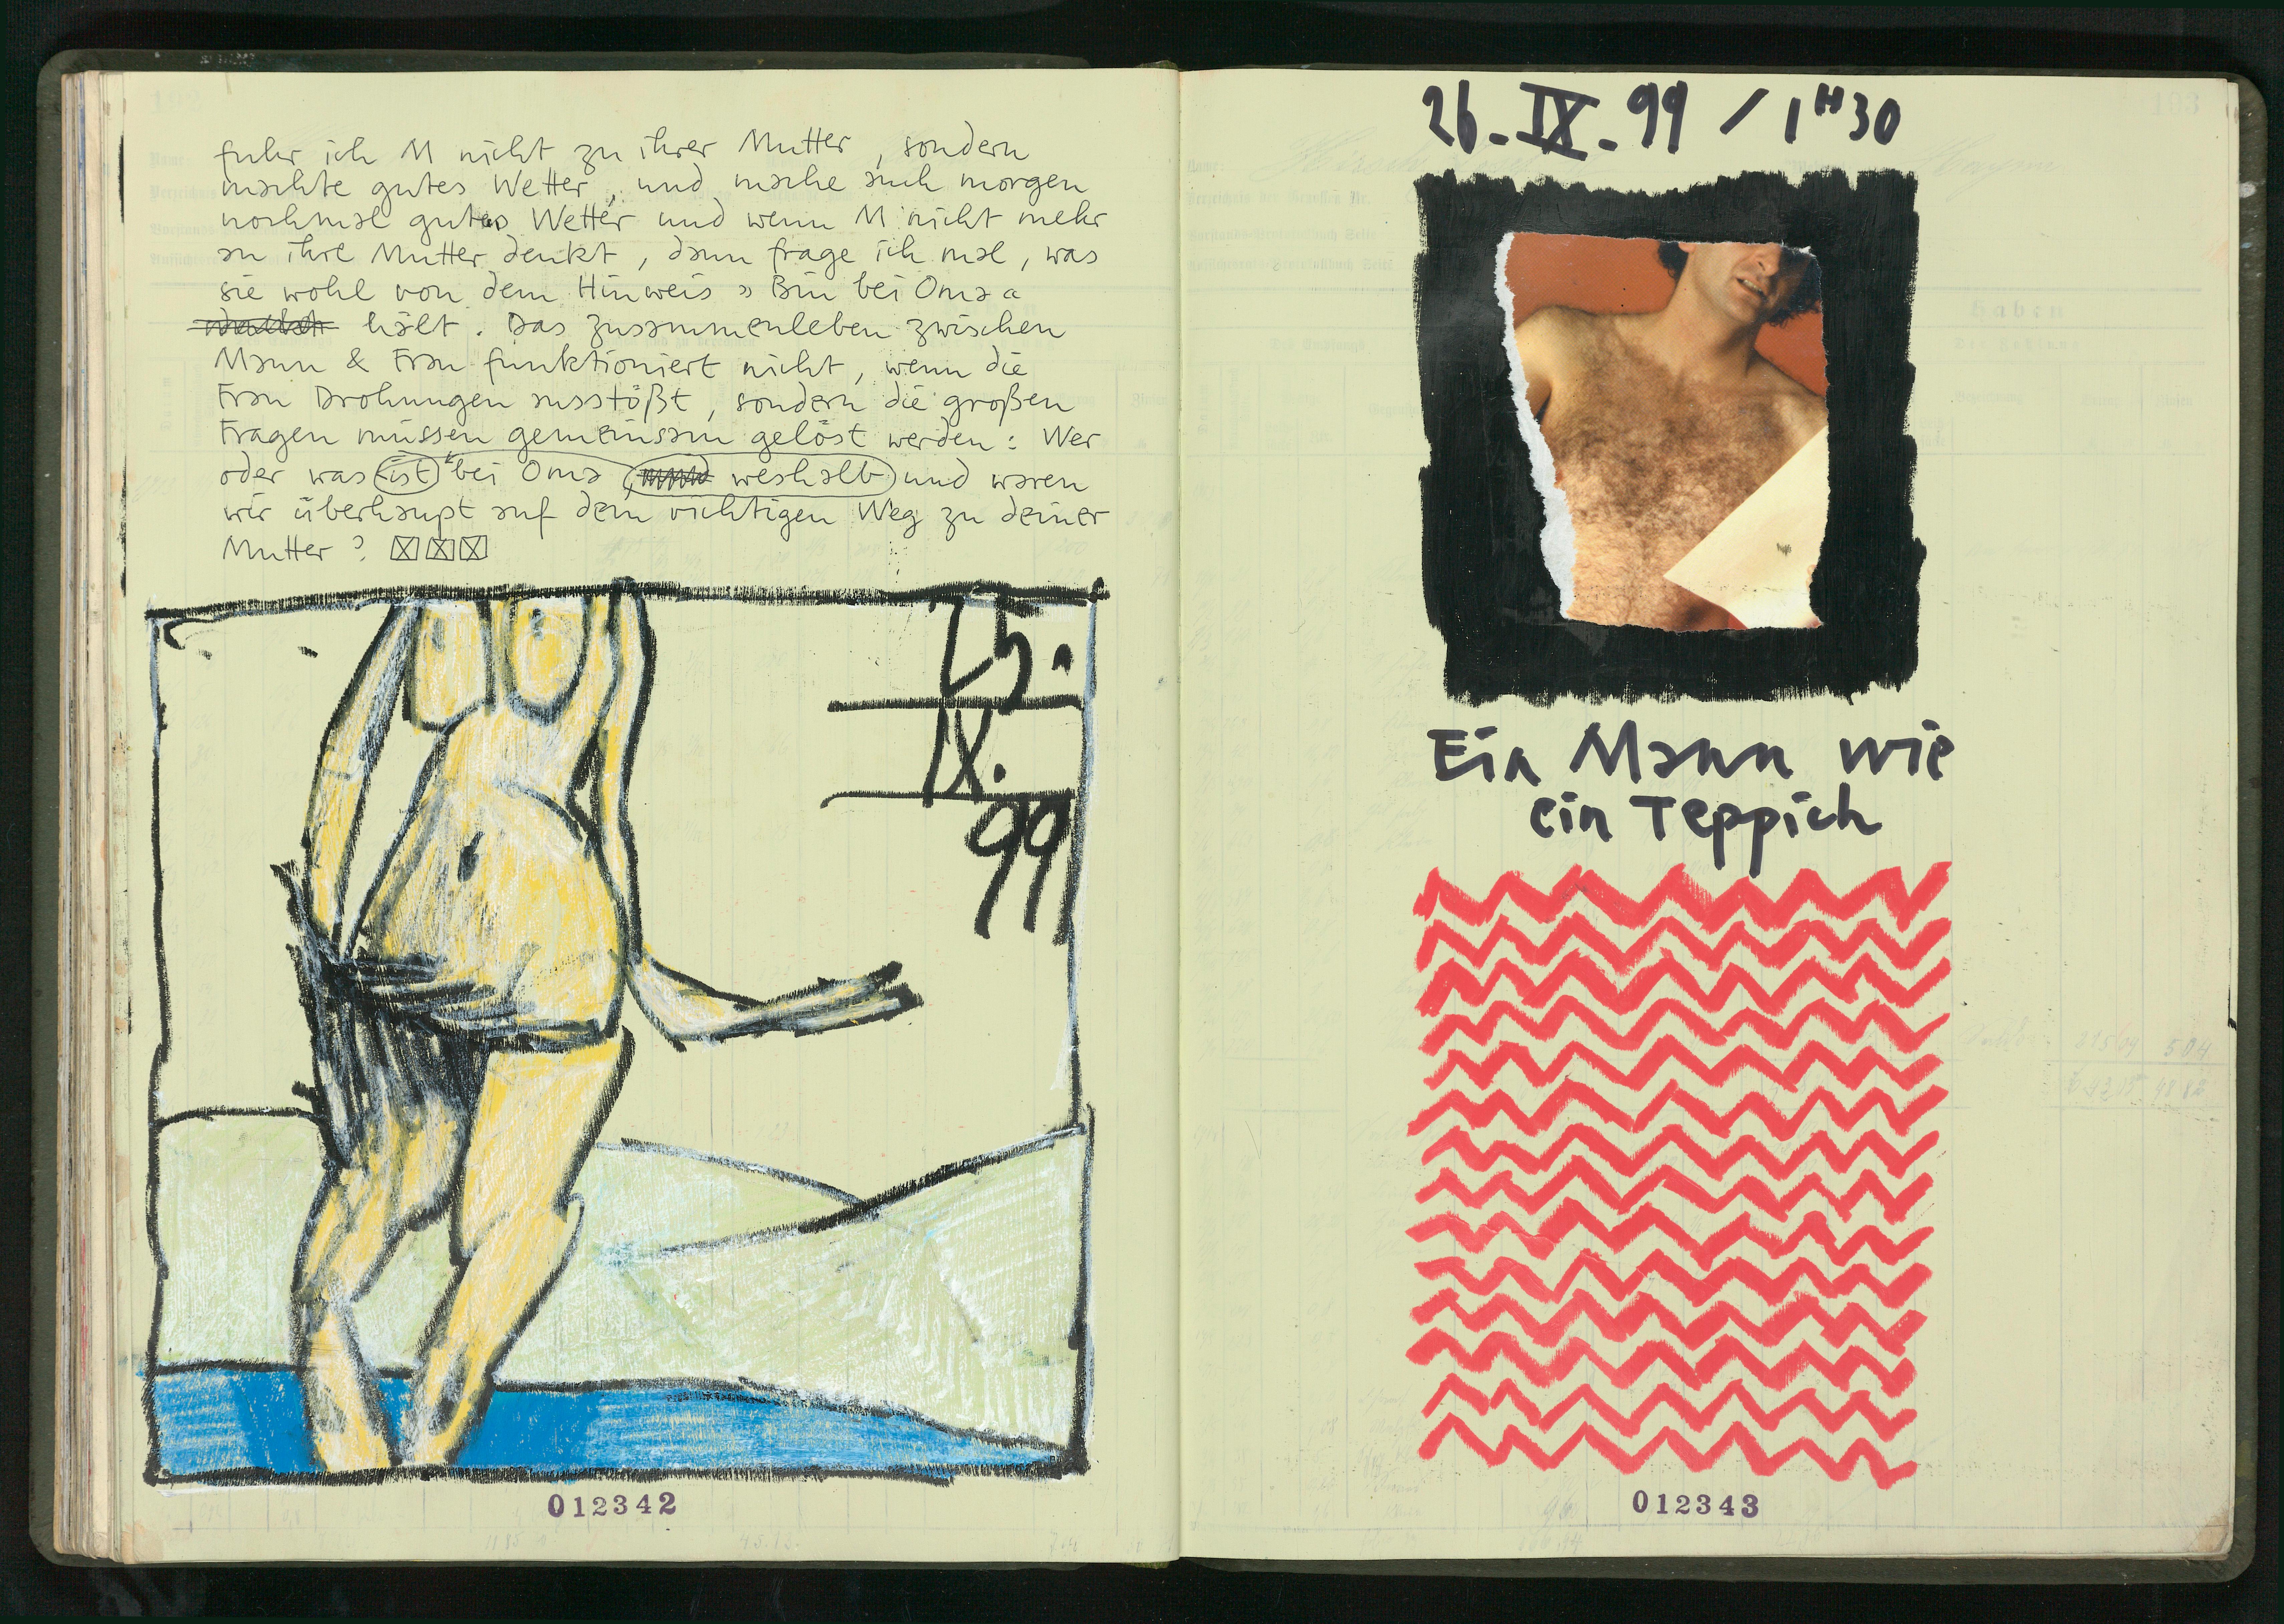 fuhr ich M nicht zu ihrer Mutter, sondern
machte gutes Wetter, und mache auch morgen
nochmal gutes Wetter und wenn M nicht mehr
an ihre Mutter denkt, dann frage ich mal, was
sie wohl von dem Hinweis » Bin bei Oma «
hält. Das Zusammenleben zwischen
Mann & Frau funktioniert nicht, wenn die
Frau Drohungen ausstößt, sondern die großen
Fragen müssen gemeinsam gelöst werden: Wer
oder was ist bei Oma weshalb und waren
wir überhaupt auf dem richtigen Weg zu deiner
Mutter?
25.
IX.
99
012342
26-IX-99 / 1H30
Ein Mann wie
ein Teppich
Haben
012343